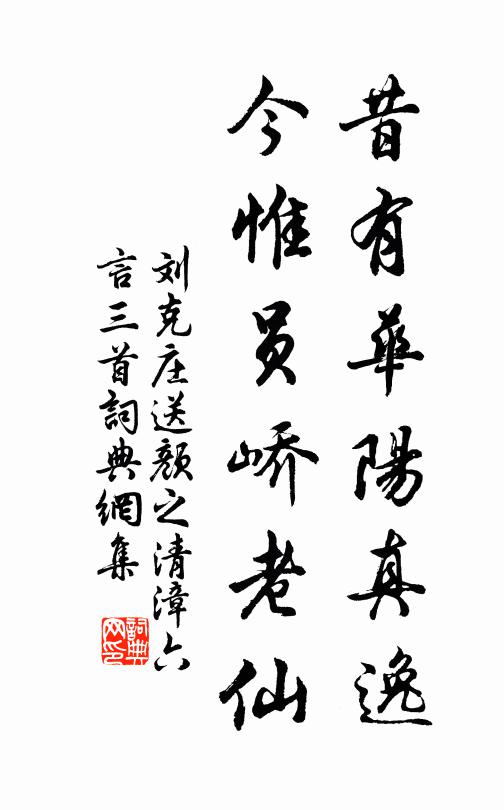 昔有華陽真逸
今惟员峤老仙
刘克庄送颜之清漳六
言三首詞典網集
詞典
网印